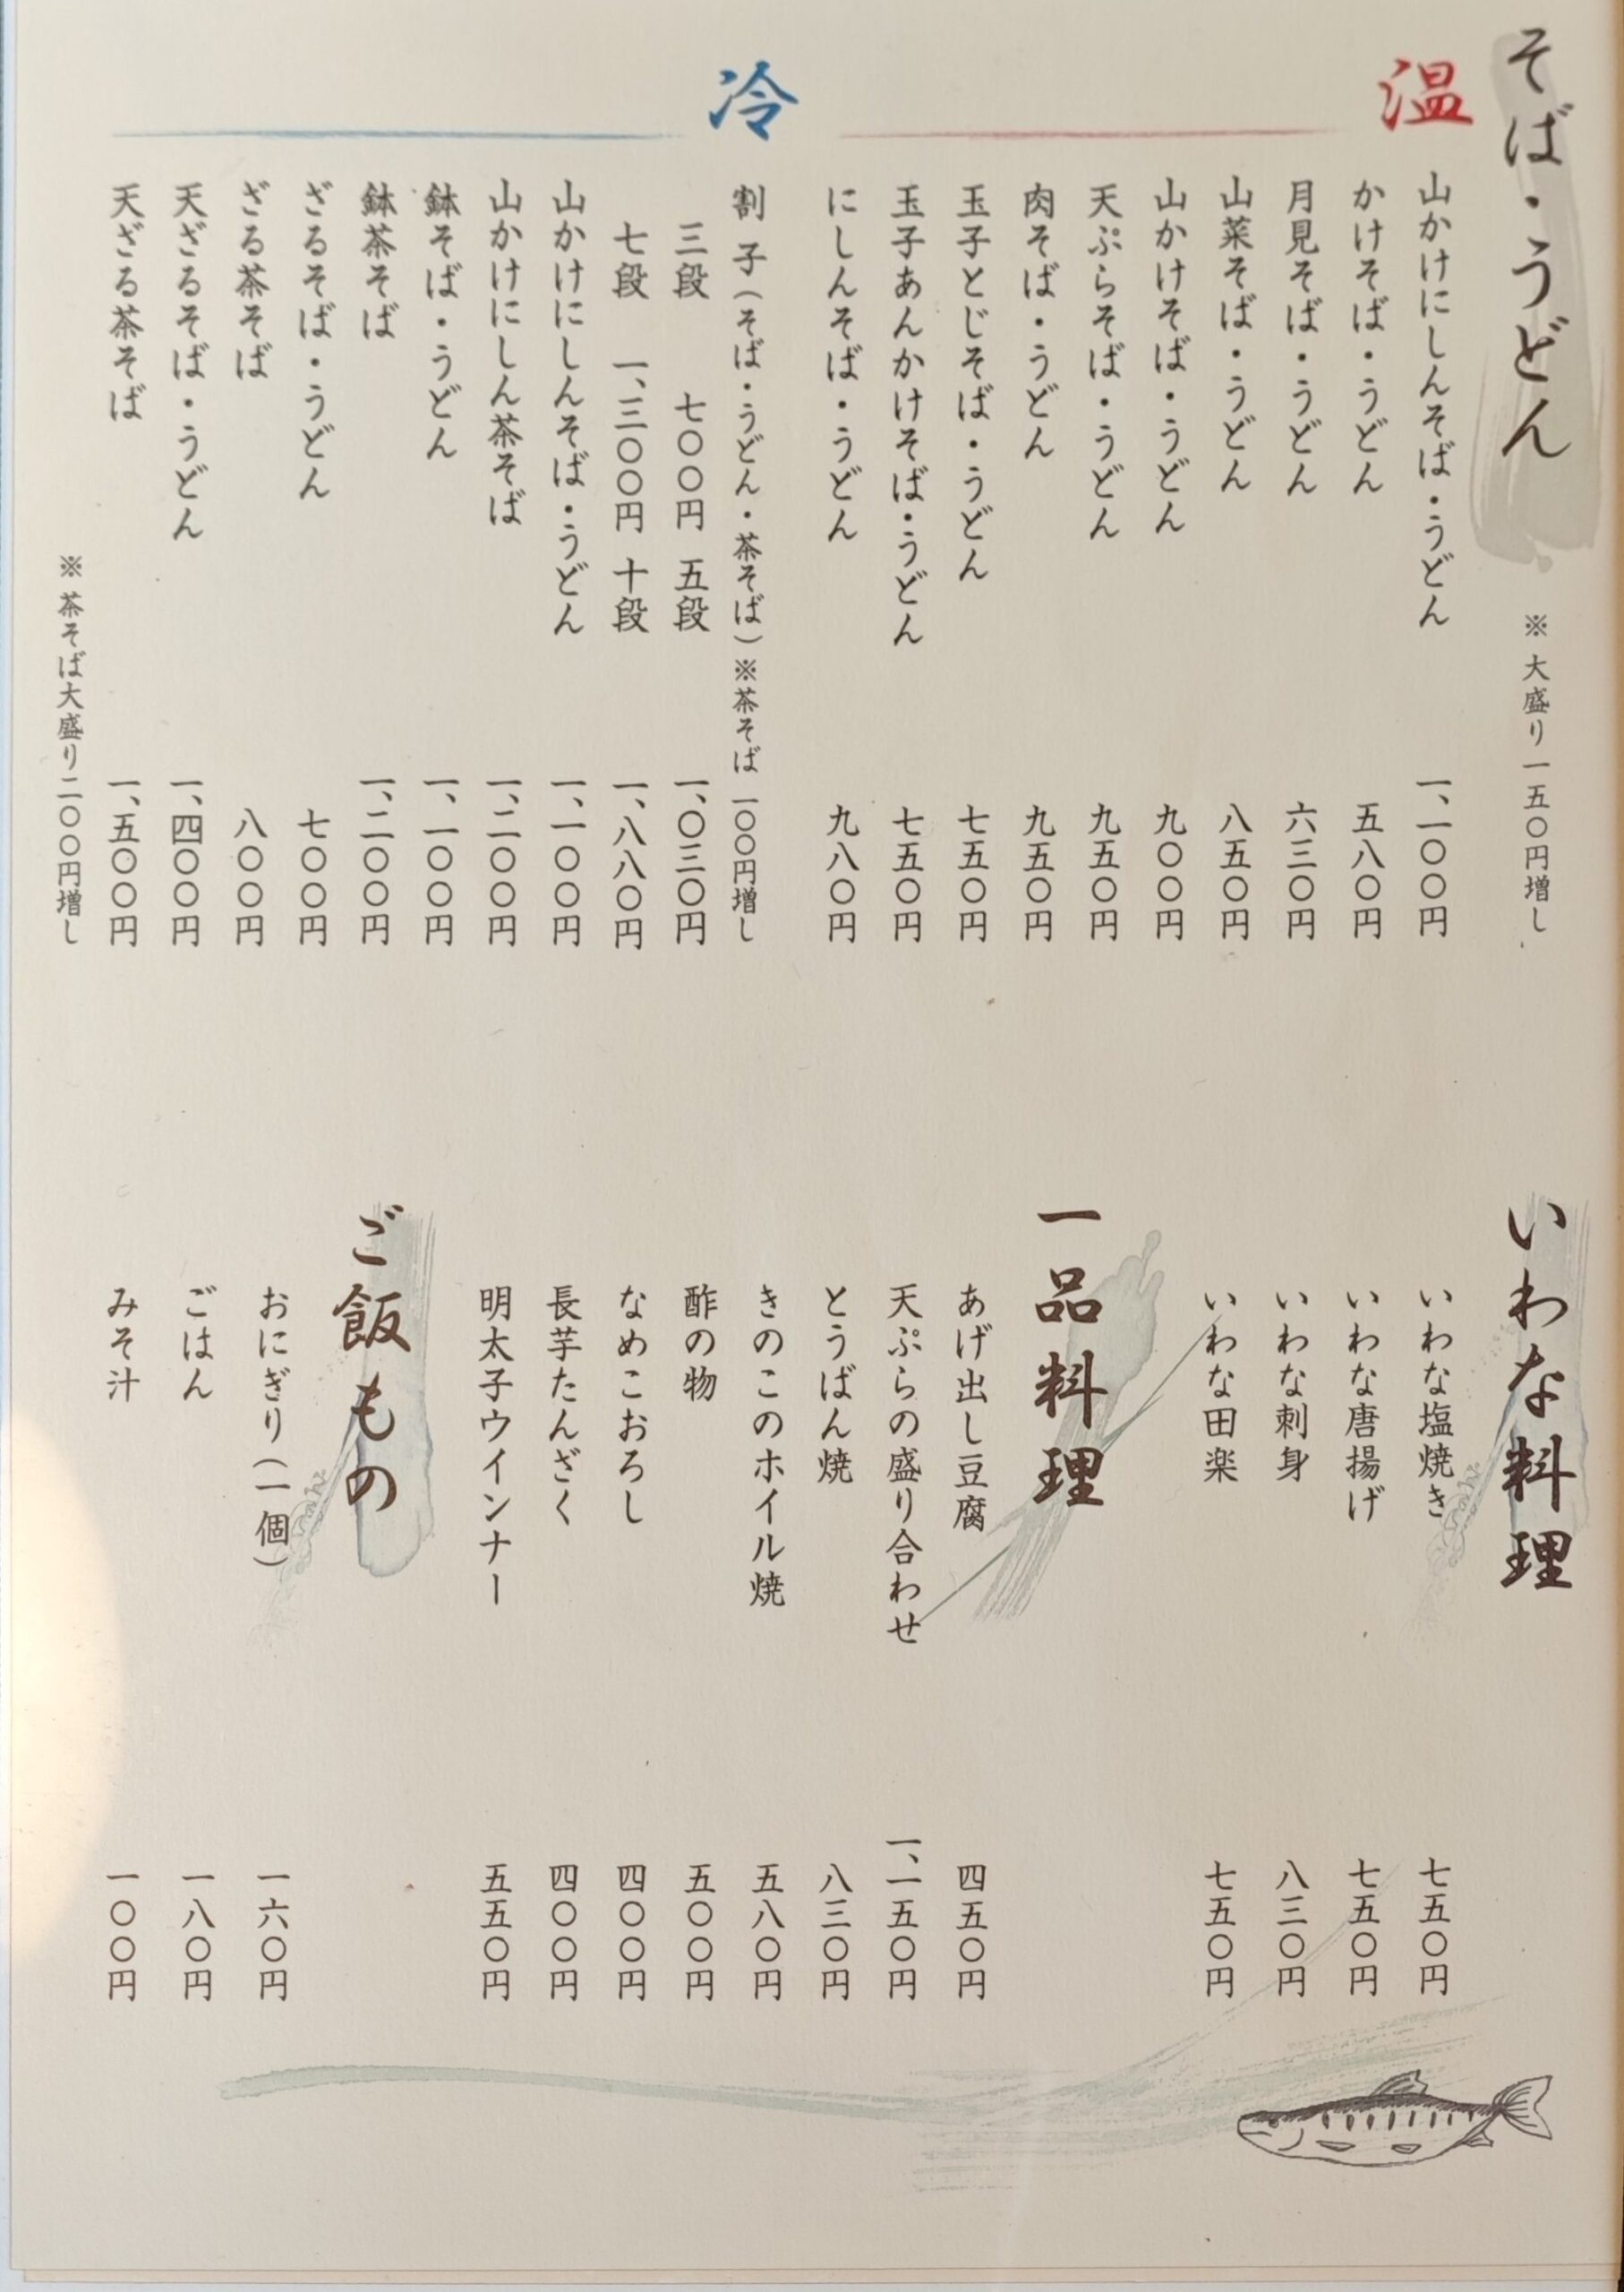 そば・うどん
※大盛り一五〇円増し
温
山かけにしんそば・うどん 一、一〇〇円
かけそば・うどん 五八〇円
月見そば・うどん 六三〇円
山菜そば・うどん 八五〇円
山かけそば・うどん 九〇〇円
天ぷらそば・うどん 九五〇円
肉そば・うどん 九五〇円
玉子とじそば・うどん 七五〇円
玉子あんかけそば・うどん 七五〇円
にしんそば・うどん 九八〇円
冷
割子(そば・うどん・茶そば)※茶そば一〇〇円増し
三段 七〇〇円 五段 一、〇三〇円
七段 一、三〇〇円 十段 一、八八〇円
山かけにしんそば・うどん 一、一〇〇円
山かけにしん茶そば 一、二〇〇円
鉢そば・うどん 一、一〇〇円
鉢茶そば 一、二〇〇円
ざるそば・うどん 七〇〇円
ざる茶そば 八〇〇円
天ざるそば・うどん 一、四〇〇円
天ざる茶そば 一、五〇〇円
※茶そば大盛り二〇〇円増し
いわな料理
いわな塩焼き 七五〇円
いわな唐揚げ 七五〇円
いわな刺身 八三〇円
いわな田楽 七五〇円
一品料理
あげ出し豆腐 四五〇円
天ぷらの盛り合わせ 一、一五〇円
とうばん焼 八三〇円
きのこのホイル焼 五八〇円
酢の物 五〇〇円
なめこおろし 四〇〇円
長芋たんざく 四〇〇円
明太子ウインナー 五五〇円
ご飯もの
おにぎり(一個) 一六〇円
ごはん 一八〇円
みそ汁 一〇〇円